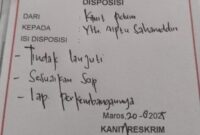 DISPOSISI
DARI : Kanit Reskrim
KEPADA : Yth. Aiptu Saharuddin
ISI DISPOSISI
- Tindak lanjuti
- Sesuaikan Sop
- Lap. Perkembangannya
Maros, 20-6-2025
KANIT RESKRIM